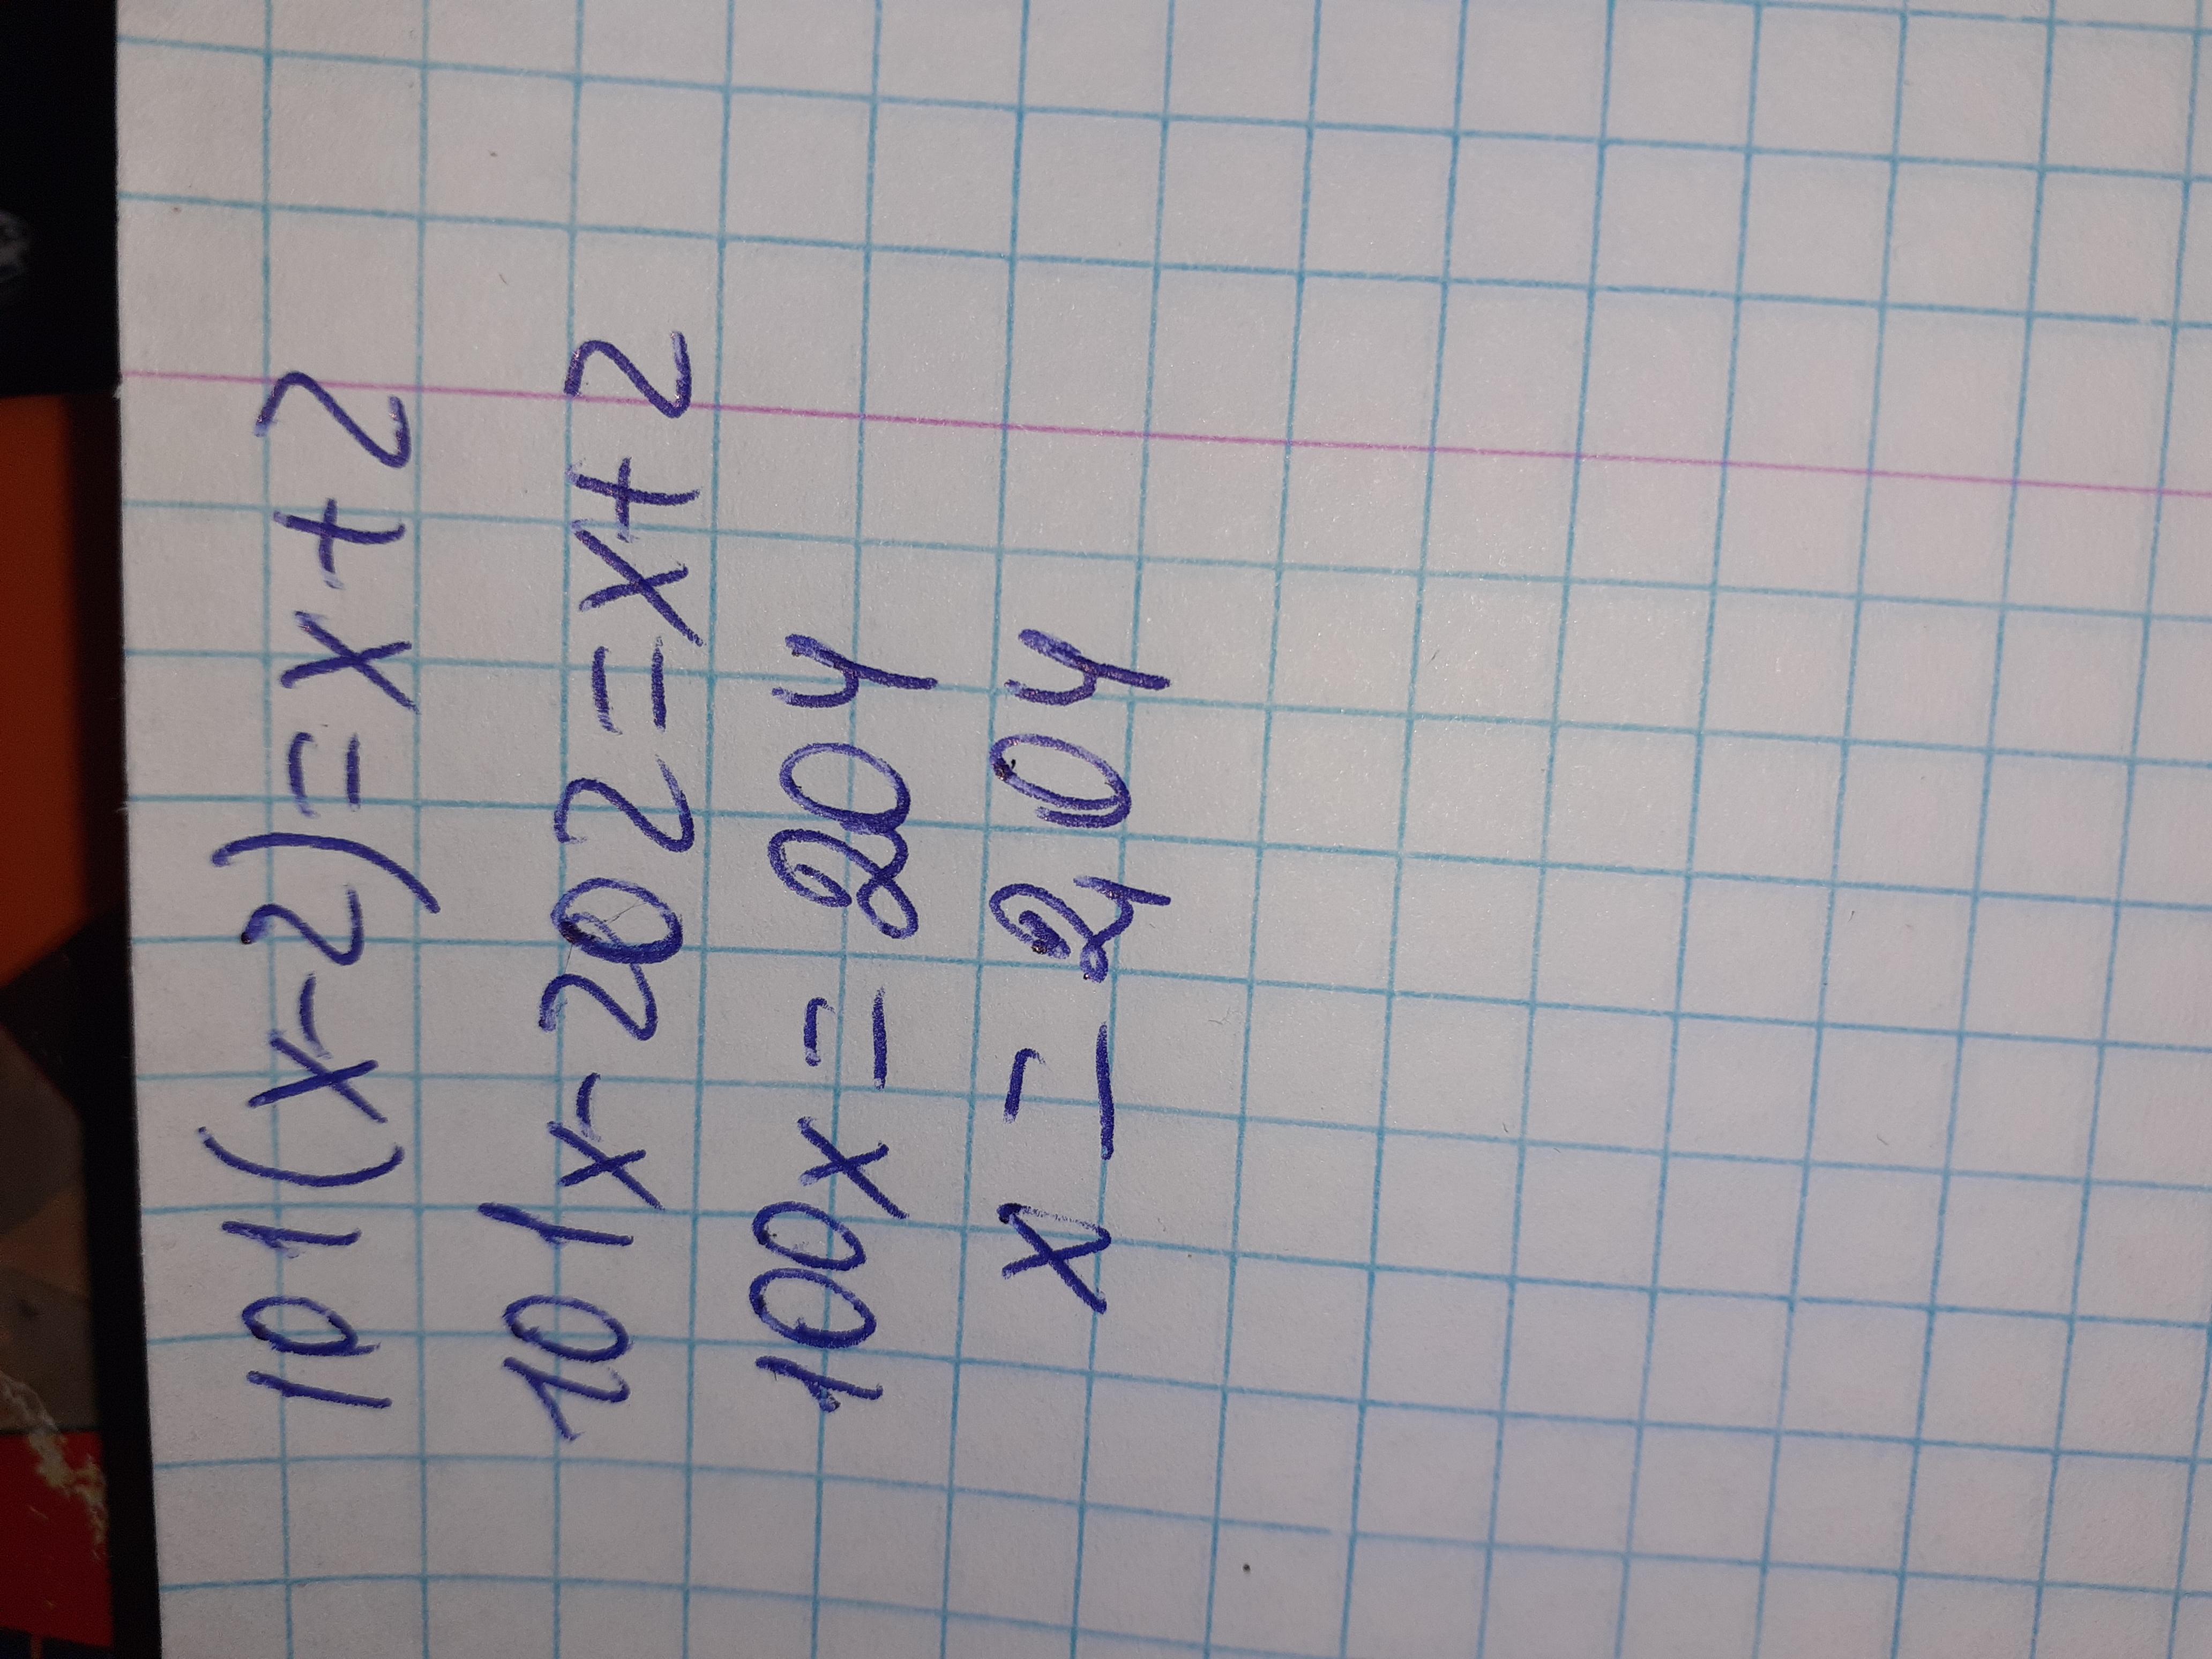 101(x-2)=x+2
101x-202=x+2
100x=204
x=2,04